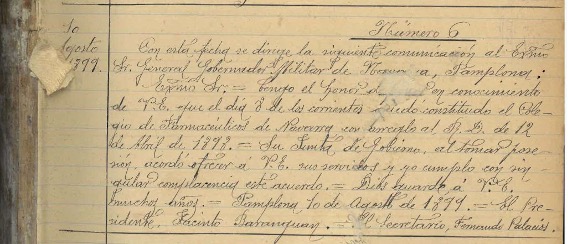 Número 6
10
Agosto
1899.
Con esta fecha se dirije la siguiente comunicación al Exmo
Sr. General Gobernador Militar de Navarra, Pamplona:
Exmo Sr. = Tengo el honor de en conocimiento
de V.E. que el día 8 de los corrientes quedó constituido el Cole-
gio de Farmacéuticos de Navarra con arreglo al R. D. de 12
de Abril de 1898. = Su Junta de Gobierno, al tomar pose-
sión, acordó ofrecer á V.E. sus servicios y yo cumplo con sin-
gular complacencia este acuerdo. = Dios guarde á V.E.
muchos años. = Pamplona 10 de Agosto de 1899. = El Pre-
sidente, Jacinto Baranguan. = El Secretario, Fernando Palacios.